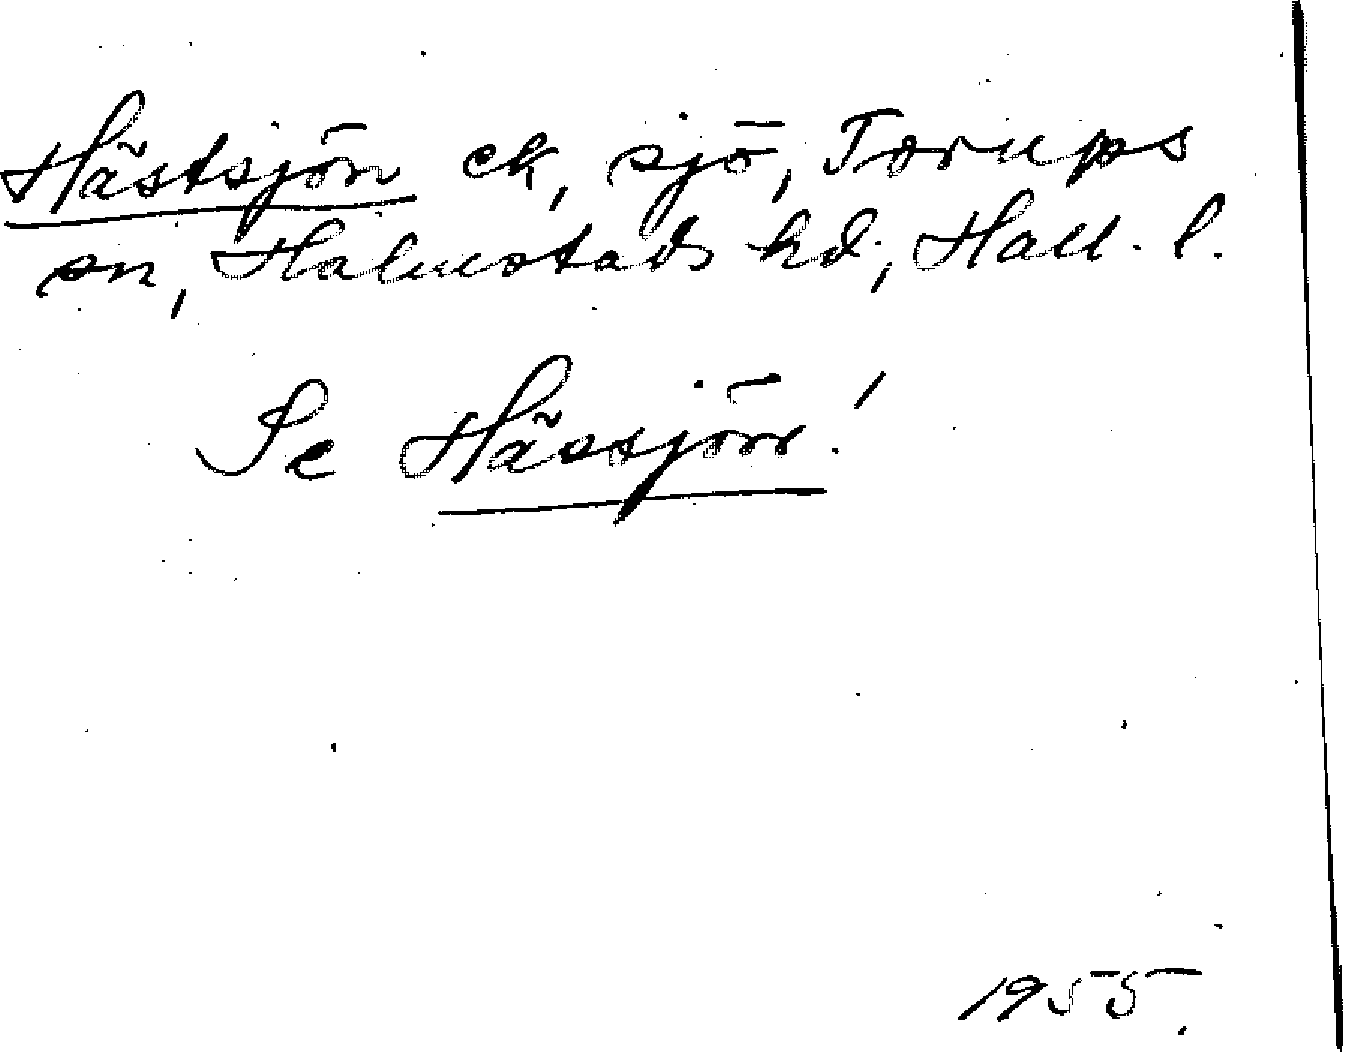 Hästsjön ek, sjö, Torups
sn, Halmstads hd, Hall. l.
Se Hässjön!
1955.